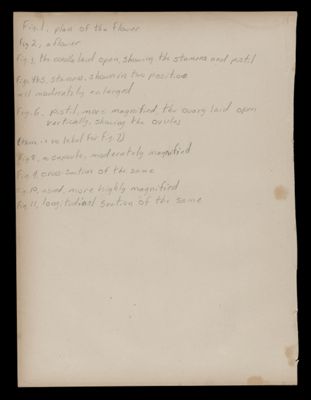 Fig. 1, plan of the flower
fig 2, a flower
Fig. 3, the corolla laid open, showing the stamens and pistil
Fig. 4&5, stamens, shown in two positions
all moderately enlarged
Fig. 6, Pistil, more magnified, the ovary laid open
vertically, showing the ovules
(there is no label for fig. 7)
Fig 8, a capsule, moderately magnified
Fig. 9, cross-section of the same
Fig. 10, a seed, more highly magnified
Fig 11, longitudinal section of the same